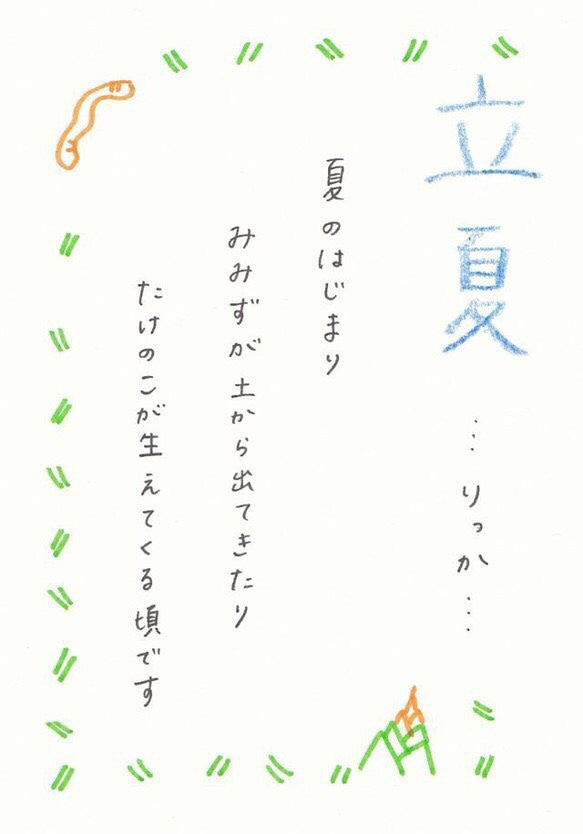 立夏
…りっか…
夏のはじまり
みみずが土から出てきたり
たけのこが生えてくる頃です